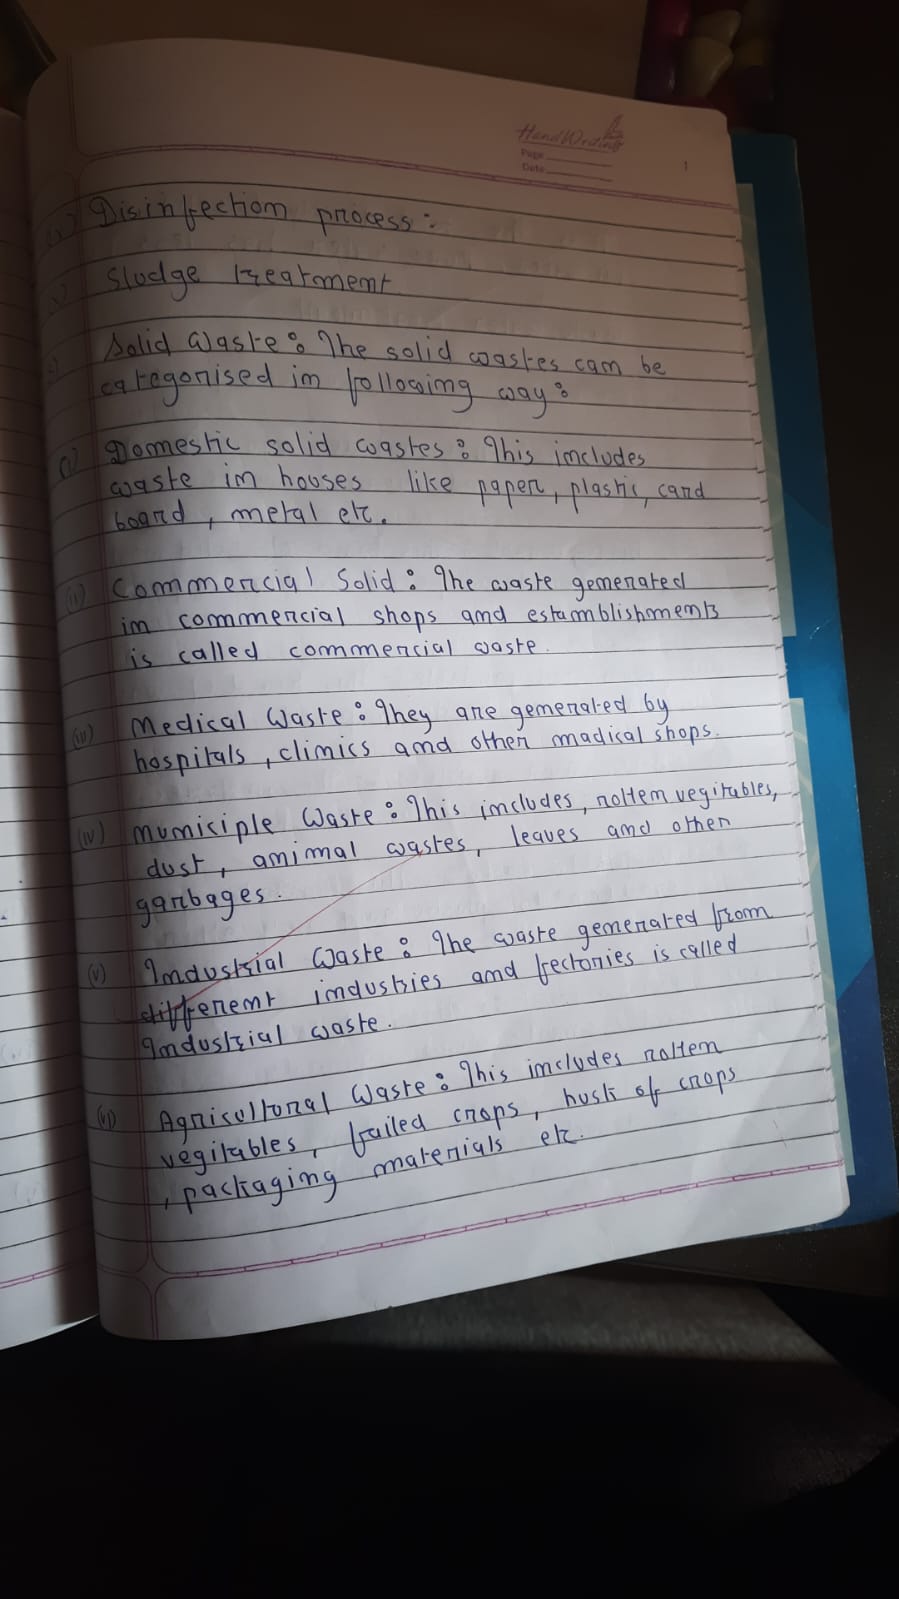 HandWriting
Page
Date
1
Disinfection process:
Sludge treatment
Solid Waste: The solid wastes can be
categorised in following way:
(i) Domestic solid wastes: This includes
waste in houses like paper, plastic, card
board, metal etc.
(ii) Commercial Solid: The waste generated
in commercial shops and estamblishments
is called commercial waste.
(iii) Medical Waste: They are generated by
hospitals, clinics and other madical shops.
(iv) Municiple Waste: This includes, rottem vegitables,
dust, animal wastes, leaves and other
garbages.
(v) Industrial Waste: The waste generated from
different industries and fectories is called
Industrial waste.
(vi) Agricultoral Waste: This includes rottem
vegitables, failed crops, husk of crops
, packaging materials etc.